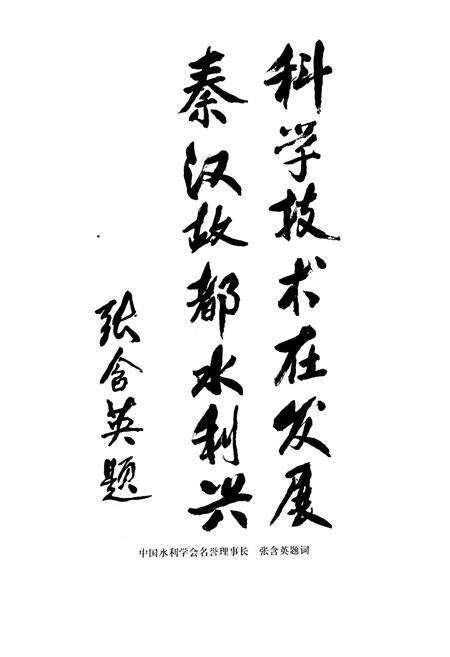 科学技术在发展
秦汉故都水利兴
张含英题
中国水利学会名誉理事长 张含英题词